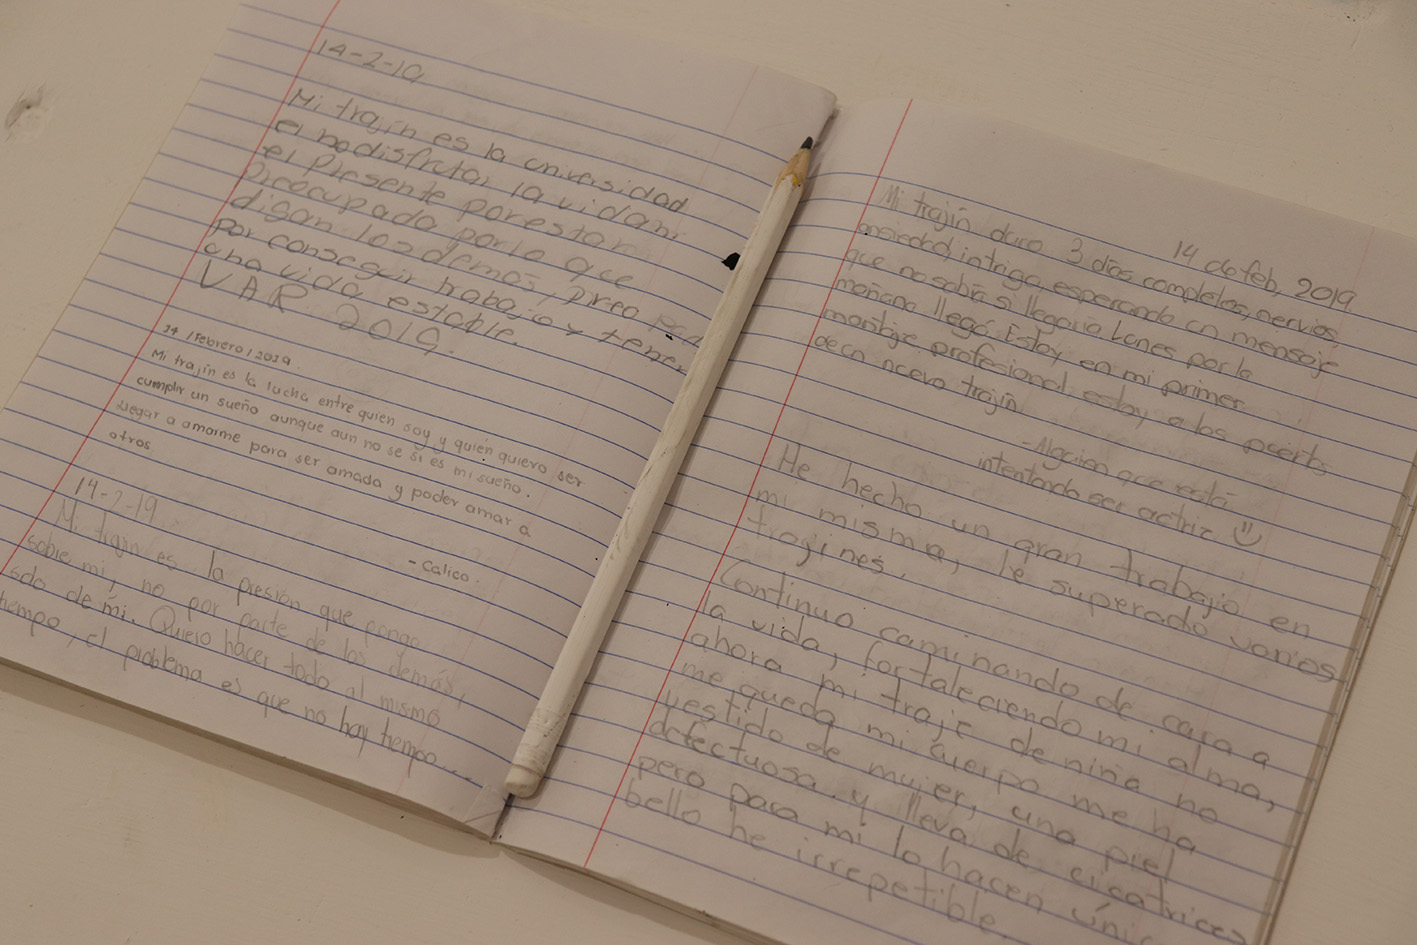 14-2-19
Mi trajín es la universidad
el no disfrutar la vida ni
el presente por estar
preocupada por lo que
digan los demás, preo
por conseguir trabajo y tener
una vida estable.
VAR 2019.
14 /Febrero/2019
Mi trajín es la lucha entre quien soy y quién quiero ser
cumplir un sueño aunque aun no se si es mi sueño.
Llegar a amarme para ser amada y poder amar a
otros
- Calico.
14-2-19
Mi trajin es la presión que pongo
sobre mi, no por parte de los demás,
solo de mi. Quiero hacer todo al mismo
tiempo, el problema es que no hay tiempo...
14 de feb, 2019.
Mi trajín duro 3 días completos, nervios
ansiedad, intriga, esperando un mensaje
que no sabía si llegaría Lunes por la
mañana llegó. Estoy en mi primer
montaje profesional, estoy a las puertas
de un nuevo trajín.
- Alguien que está
intentando ser actriz :)
He hecho un gran trabajo en
mi misma, he superado varios
trajines.
Continuo caminando de cara a
la vida, fortaleciendo mi alma,
ahora mi traje de niña no
me queda mi cuerpo me ha
vestido de mujer, una piel
defectuosa y lleva de cicatrices
pero para mi lo hacen únic
bello he irrepetible.